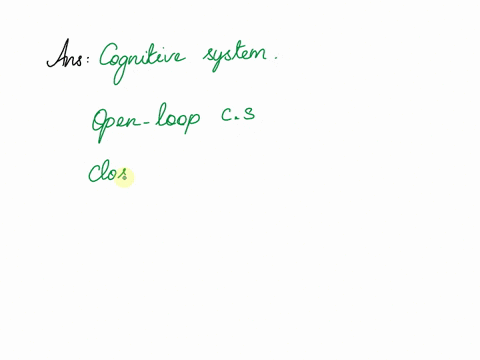 Ans: Cognitive system.
Open-loop c.s
Clos